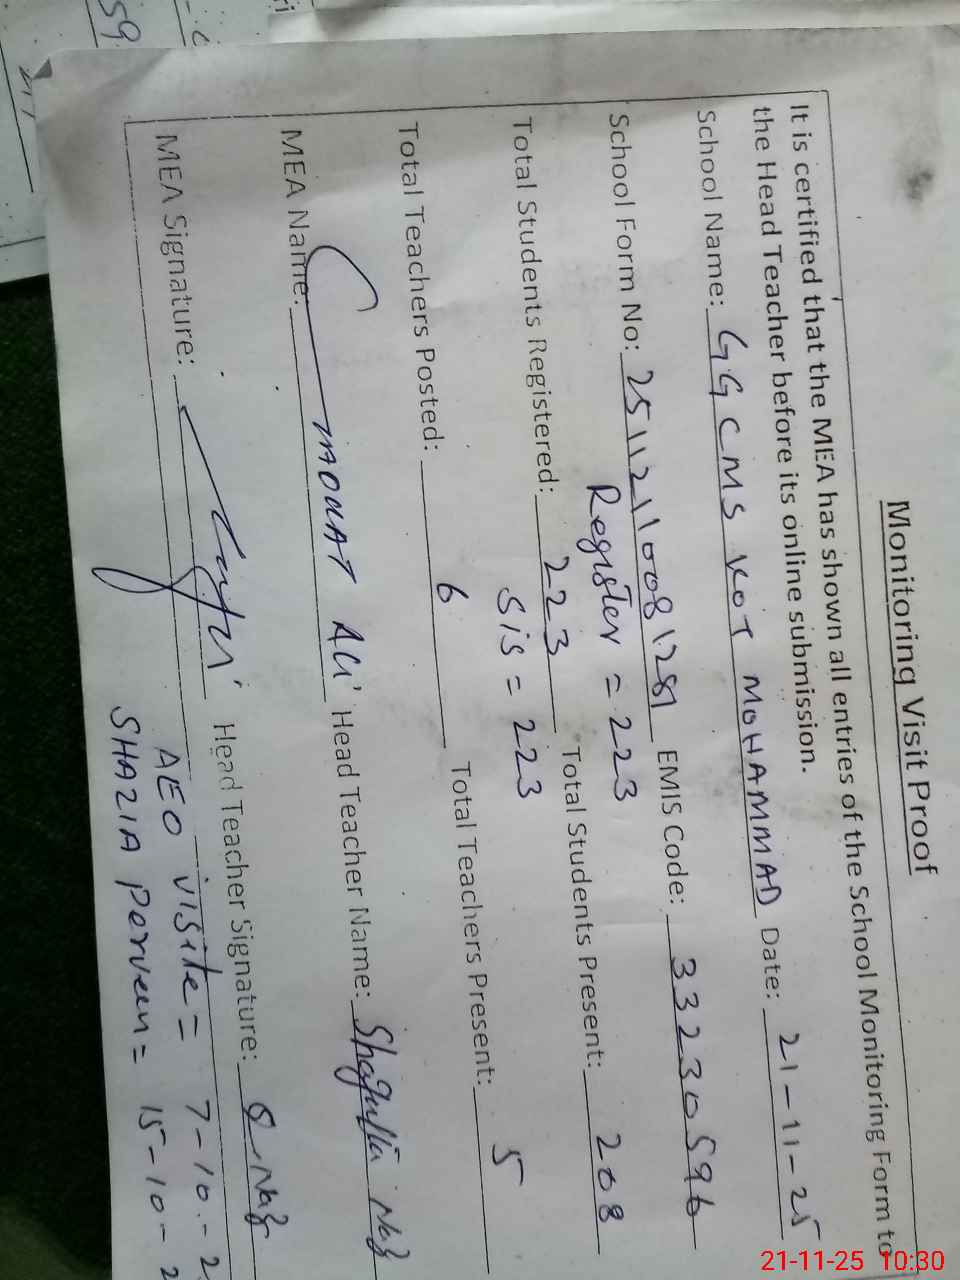 Monitoring Visit Proof
It is certified that the MEA has shown all entries of the School Monitoring Form to
the Head Teacher before its online submission.
School Name: GGCMS KOT MOHAMMAD Date: 21-11-25
School Form No: 25112110081281 EMIS Code: 33230596
Register = 223
Total Students Registered: 223 Total Students Present: 208
Sis = 223
Total Teachers Posted: 6 Total Teachers Present: 5
MEA Name: Ali Head Teacher Name: Shagufta Naz
MEA Signature: Head Teacher Signature: S. Naz
AEO visite = 7-10-2
SHAZIA Perveen = 15-10-2
59
21-11-25 10:30